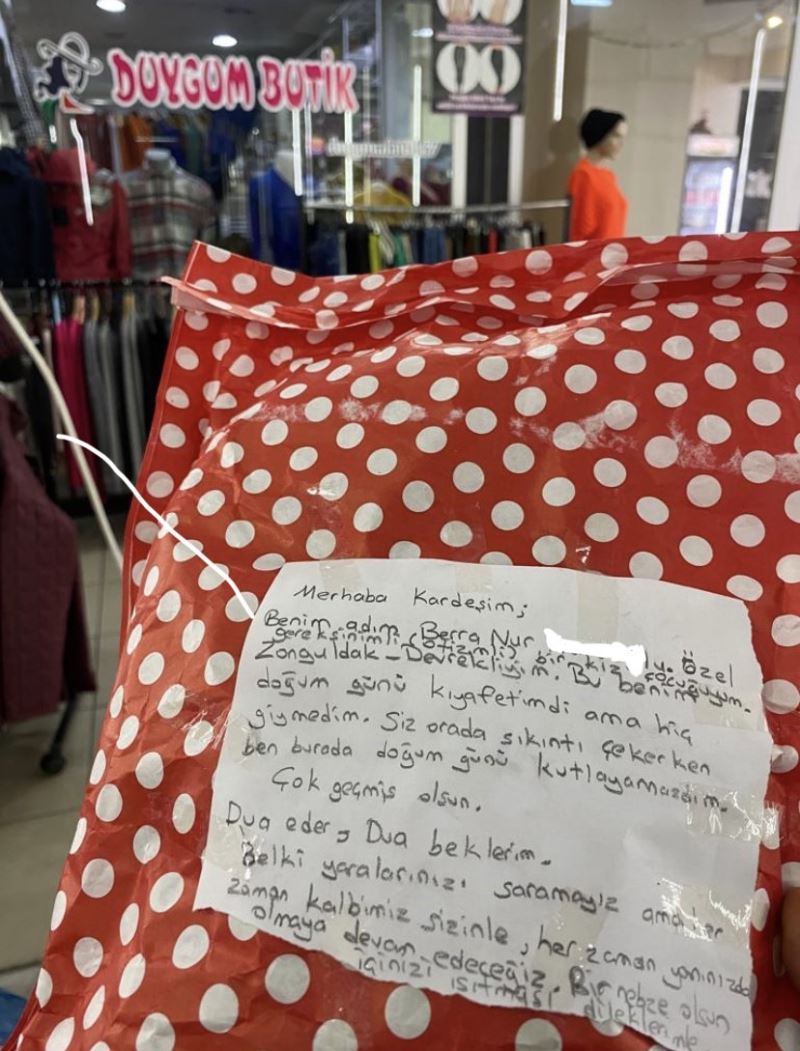 DUYGUM BUTİK
Merhaba Kardeşim;
Benim adım Berra Nur
gereksinimli (otizmli) bir kız çocuğuyum.
ly. Özel
Zonguldak - Devrekliyim. Bu benim
doğum günü kıyafetimdi ama hiç
giymedim. Siz orada sıkıntı çekerken
ben burada doğum günü kutlayamazdım.
Çok geçmiş olsun.
Dua eder, Dua beklerim.
Belki yaralarınızı saramayız ama her
zaman kalbimiz sizinle, her zaman yanınızda
olmaya devam edeceğiz. Bir nebze olsun
içinizi ısıtması dileklerimle